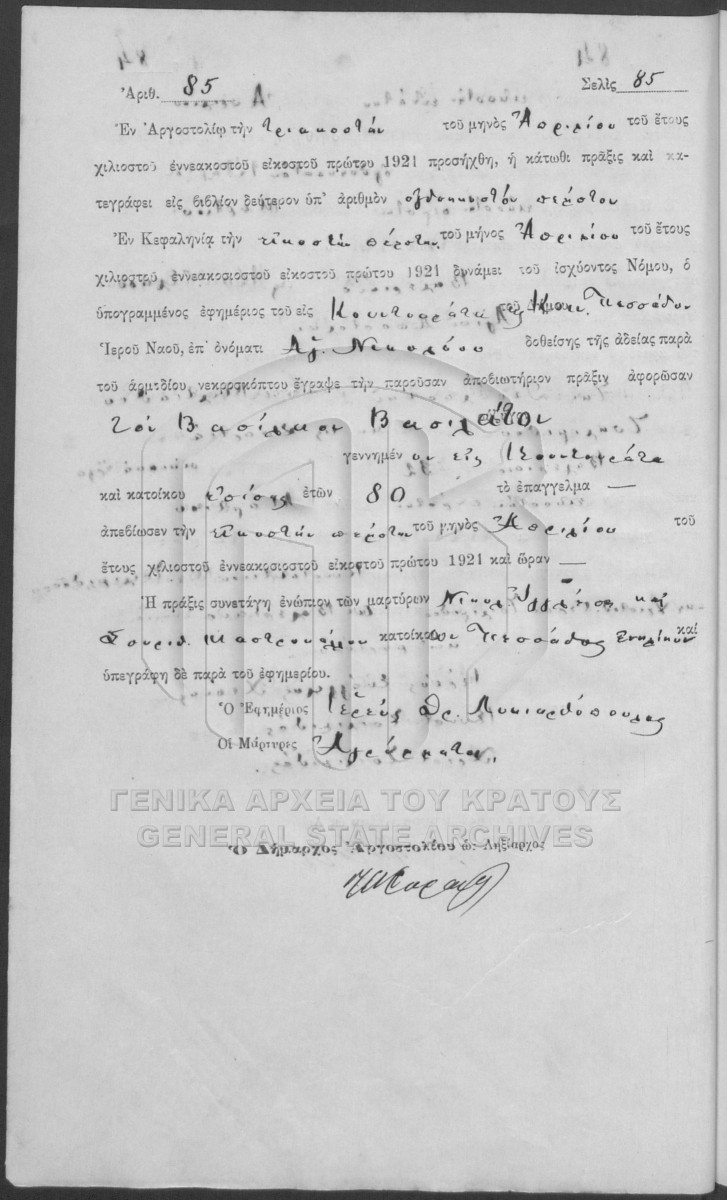 Ἀριθ. 85
Σελὶς 85
Ἐν Ἀργοστολίῳ τὴν τριακοστὴν τοῦ μηνὸς Ἀπριλίου τοῦ ἔτους
χιλιοστοῦ ἐννεακοστοῦ εἰκοστοῦ πρώτου 1921 προσήχθη, ἡ κάτωθι πρᾶξις καὶ κα-
τεγράφει εἰς βιβλίον δεύτερον ὑπ' ἀριθμὸν ὀγδοηκοστὸν πέμπτον
Ἐν Κεφαληνίᾳ τὴν εἰκοστὴν πέμπτην τοῦ μηνὸς Ἀπριλίου τοῦ ἔτους
χιλιοστοῦ ἐννεακοσιοστοῦ εἰκοστοῦ πρώτου 1921 δυνάμει τοῦ ἰσχύοντος Νόμου, ὁ
ὑπογραμμένος ἐφημέριος τοῦ εἰς Κουντουράτα Πεσσάδων
Ἱεροῦ Ναοῦ, ἐπ' ὀνόματι Ἁγ. Νικολάου δοθείσης τῆς ἀδείας παρὰ
τοῦ ἁρμοδίου νεκροσκόπτου ἔγραψε τὴν παροῦσαν ἀποβιωτήριον πρᾶξιν ἀφορῶσαν
τὸν Βασίλειον Βασιλᾶτον
γεννημένον εἰς Κουντουράτα
καὶ κατοίκου ἐπίσης ἐτῶν 80 τὸ ἐπάγγελμα —
ἀπεβίωσεν τὴν εἰκοστὴν πέμπτην τοῦ μηνὸς Ἀπριλίου τοῦ
ἔτους χιλιοστοῦ ἐννεακοσιοστοῦ εἰκοστοῦ πρώτου 1921 καὶ ὥραν —
Ἡ πρᾶξις συνετάγη ἐνώπιον τῶν μαρτύρων Νικολ. καὶ
Σπυριδ. κατοίκων Πεσσάδας ἐνηλίκων καὶ
ὑπεγράφη δὲ παρὰ τοῦ ἐφημερίου.
Ὁ Ἐφημέριος Ἱερεὺς
Οἱ Μάρτυρες Ἀγράμματοι.
ΓΕΝΙΚΑ ΑΡΧΕΙΑ ΤΟΥ ΚΡΑΤΟΥΣ
GENERAL STATE ARCHIVES
Ὁ Δήμαρχος Ἀργοστολίου ὡς Ληξίαρχος